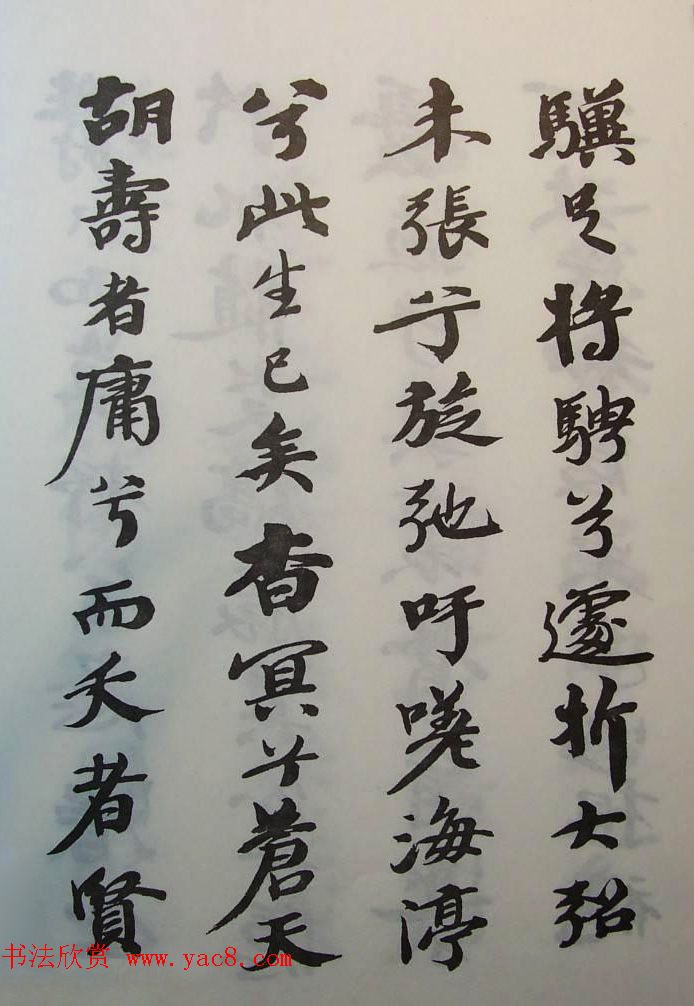 驥足將騁兮遽折大弨
未張兮旋弛吁嗟海渟
兮此生已矣杳冥兮蒼天
胡壽者庸兮而夭者賢
书法欣赏 www.yac8.com